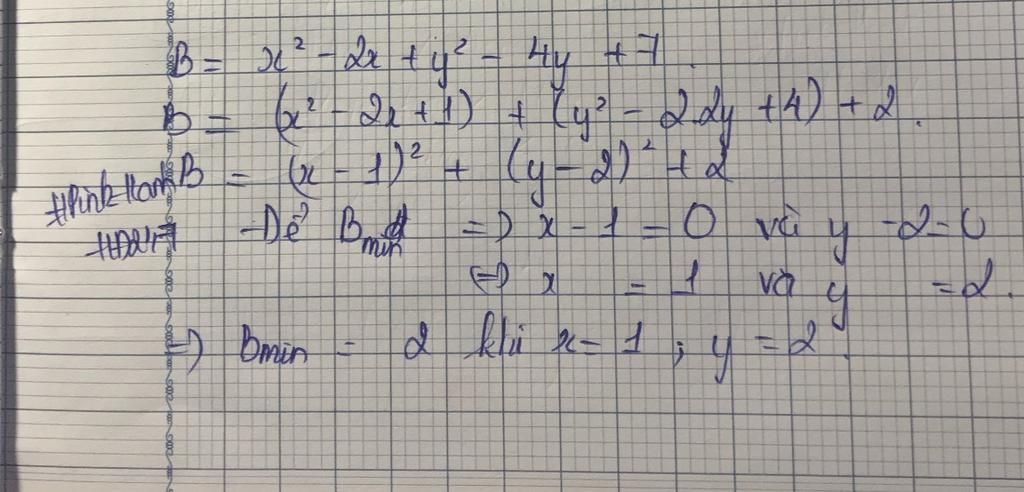 B = x² - 2x + y² - 4y + 7
B = (x² - 2x + 1) + (y² - 2.2y + 4) + 2.
B = (x - 1)² + (y - 2)² + 2
Để Bmin => x - 1 = 0 và y - 2 = 0
<=> x = 1 và y = 2.
=> Bmin = 2 khi x = 1 ; y = 2.